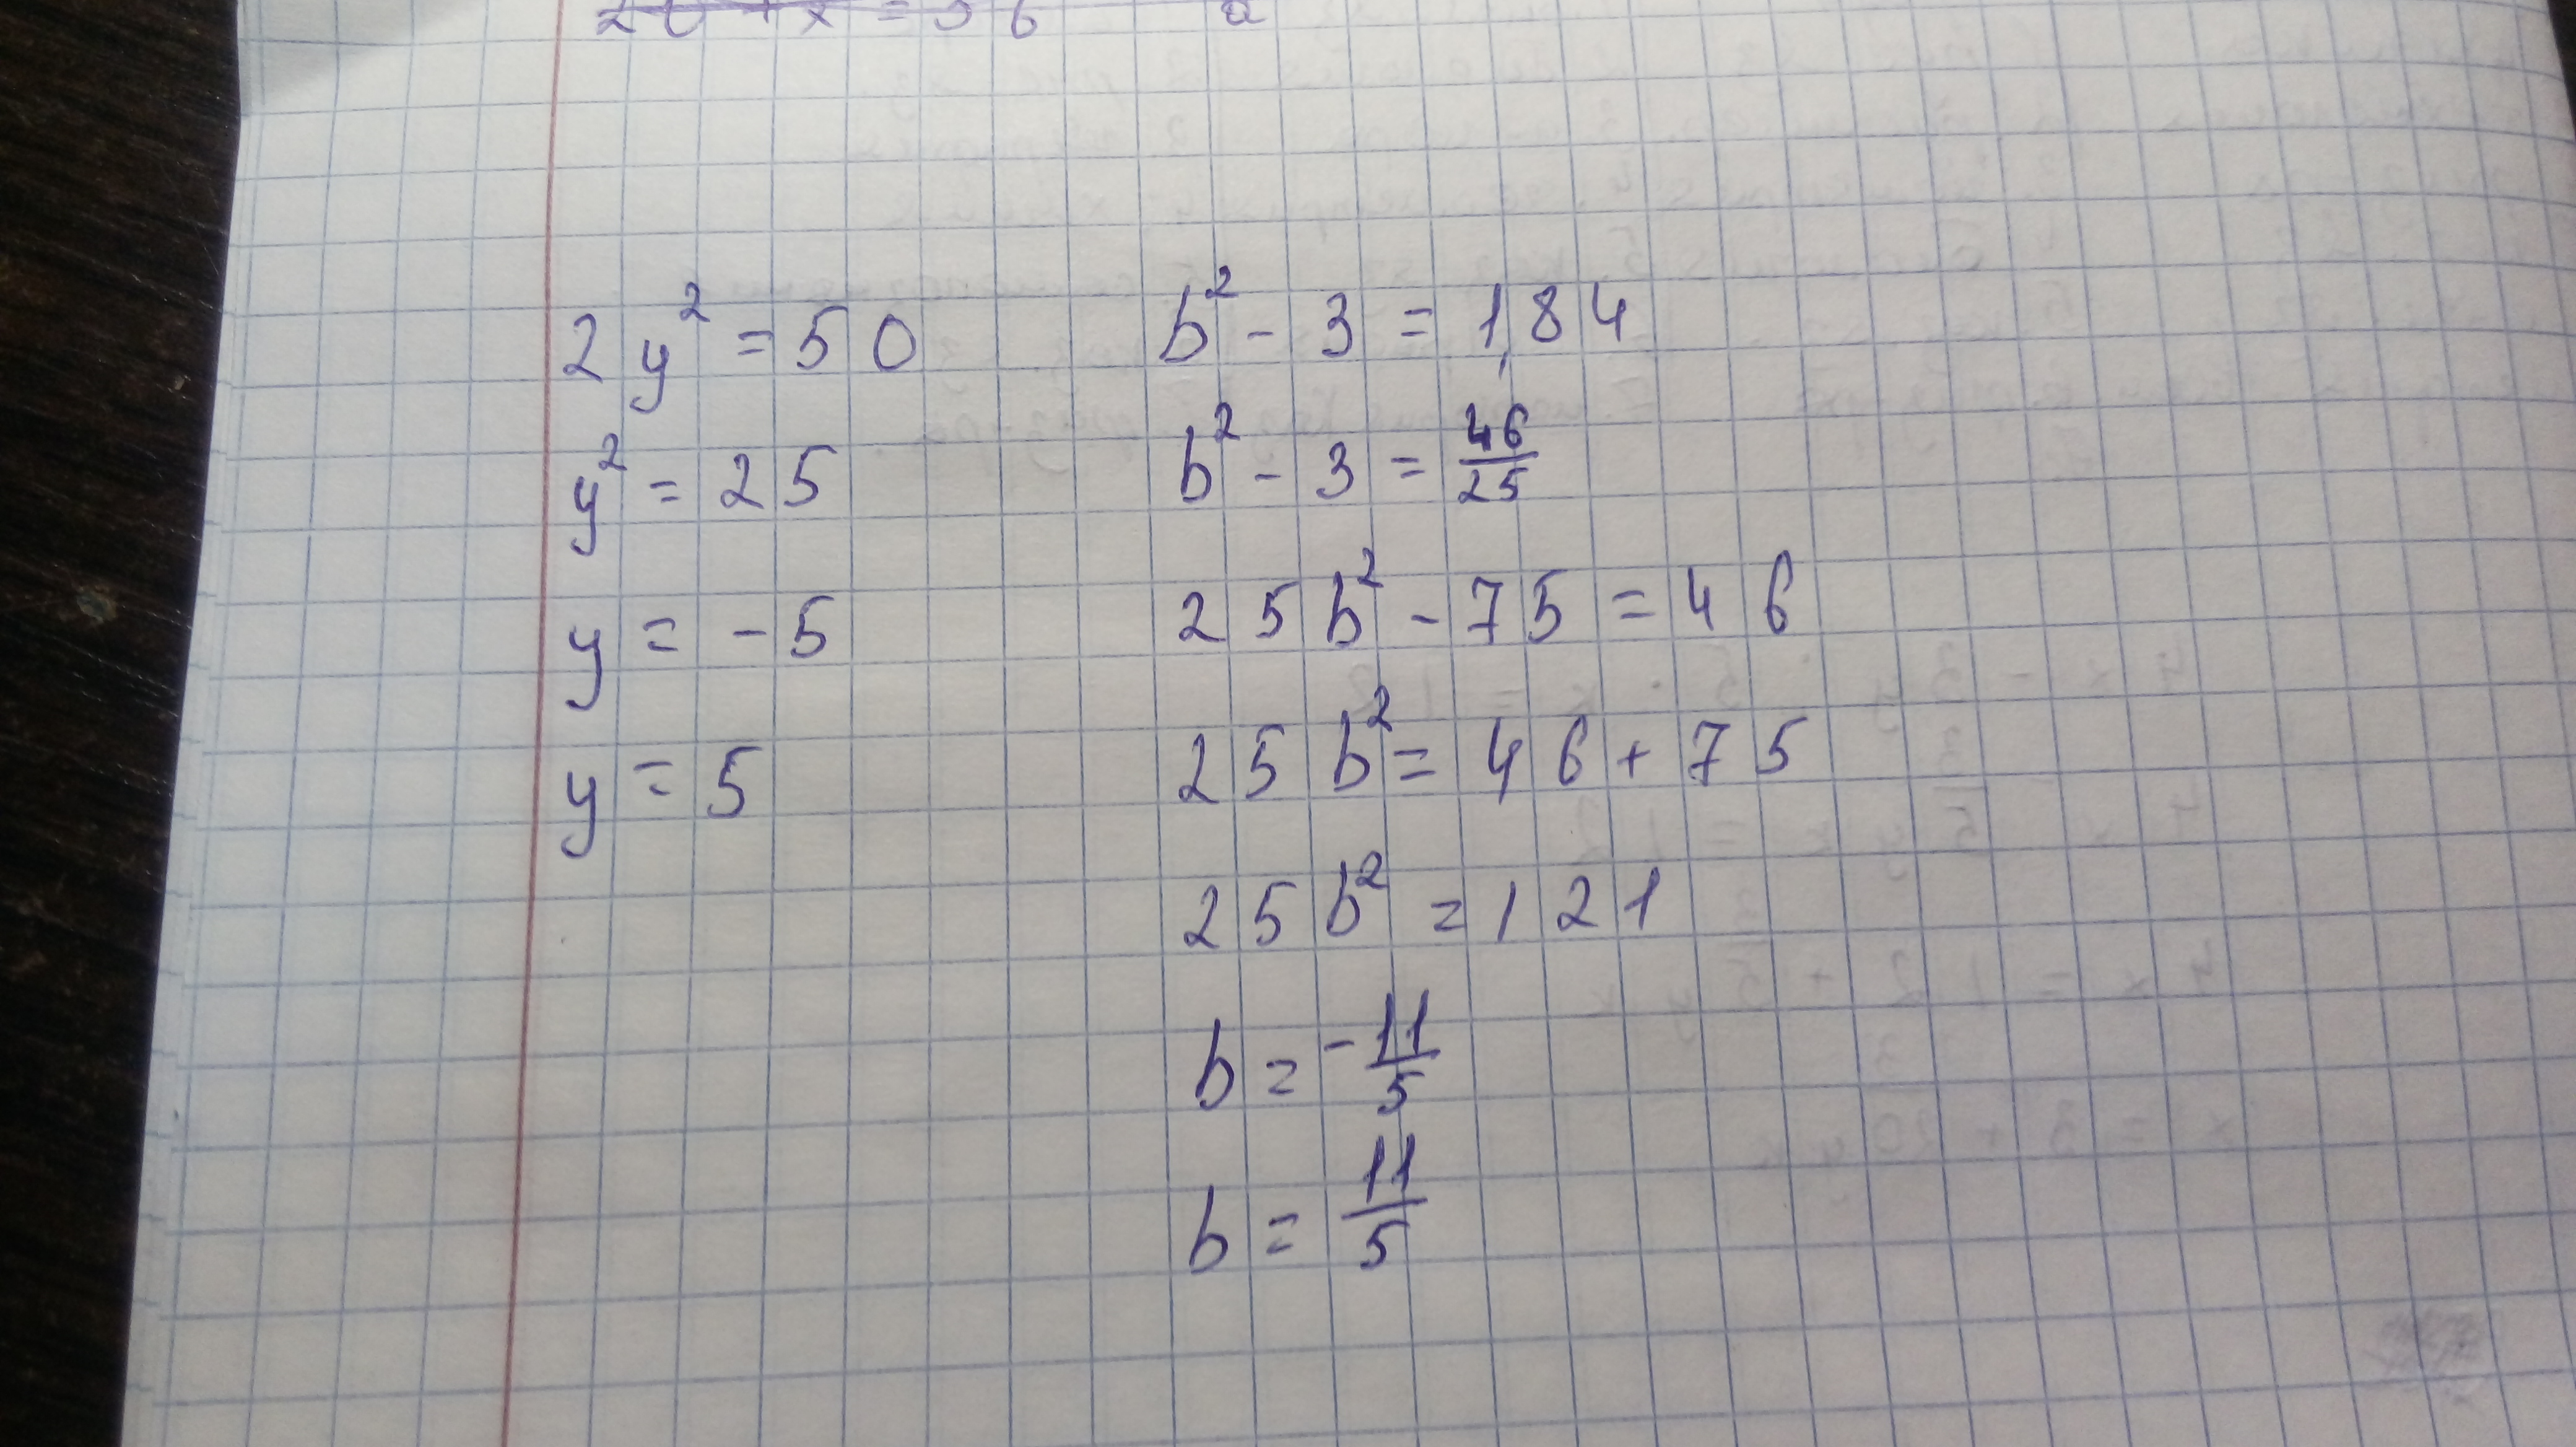 2y² = 50
y² = 25
y = -5
y = 5
b² - 3 = 1,84
b² - 3 = 46/25
25b² - 75 = 46
25b² = 46 + 75
25b² = 121
b = -11/5
b = 11/5